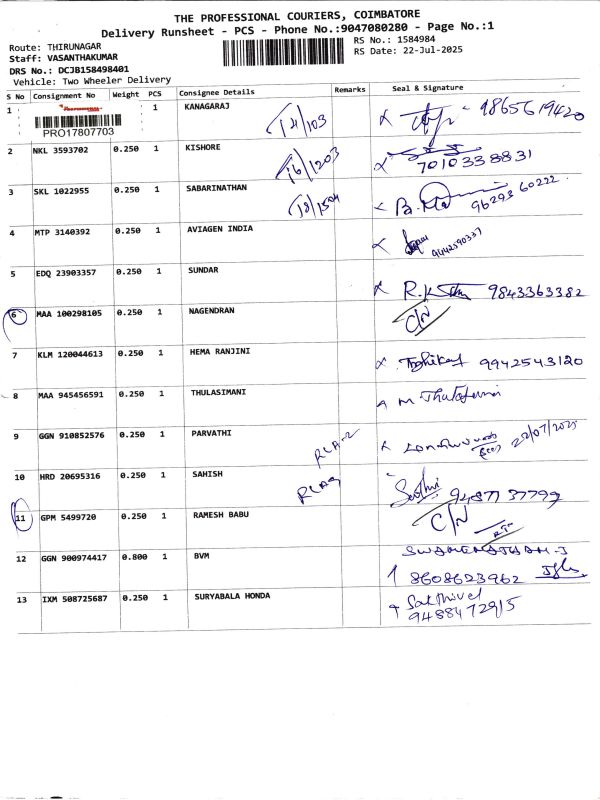 THE PROFESSIONAL COURIERS, COIMBATORE
Delivery Runsheet - PCS - Phone No.:9047080280 - Page No.:1
Route: THIRUNAGAR
RS No.: 1584984
Staff: VASANTHAKUMAR
RS Date: 22-Jul-2025
DRS No.: DCJB158498401
Vehicle: Two Wheeler Delivery
S No Consignment No Weight PCS Consignee Details Remarks Seal & Signature
1 1 KANAGARAJ T4/103 9865619420
PRO17807703
2 NKL 3593702 0.250 1 KISHORE T6/1203 7010338831
3 SKL 1022955 0.250 1 SABARINATHAN T8/1504 96293 60222
4 MTP 3140392 0.250 1 AVIAGEN INDIA 9442590337
5 EDQ 23903357 0.250 1 SUNDAR 9843363382
6 MAA 100298105 0.250 1 NAGENDRAN C/N
7 KLM 120044613 0.250 1 HEMA RANJINI 9942543120
8 MAA 945456591 0.250 1 THULASIMANI M
9 GGN 910852576 0.250 1 PARVATHI RLA-2 22/07/2025
10 HRD 20695316 0.250 1 SAHISH RLA9 9487737799
11 GPM 5499720 0.250 1 RAMESH BABU C/N
12 GGN 900974417 0.800 1 BVM SWAMINATHAN.J
8608623962
13 IXM 508725687 0.250 1 SURYABALA HONDA Sakthivel
9488472915